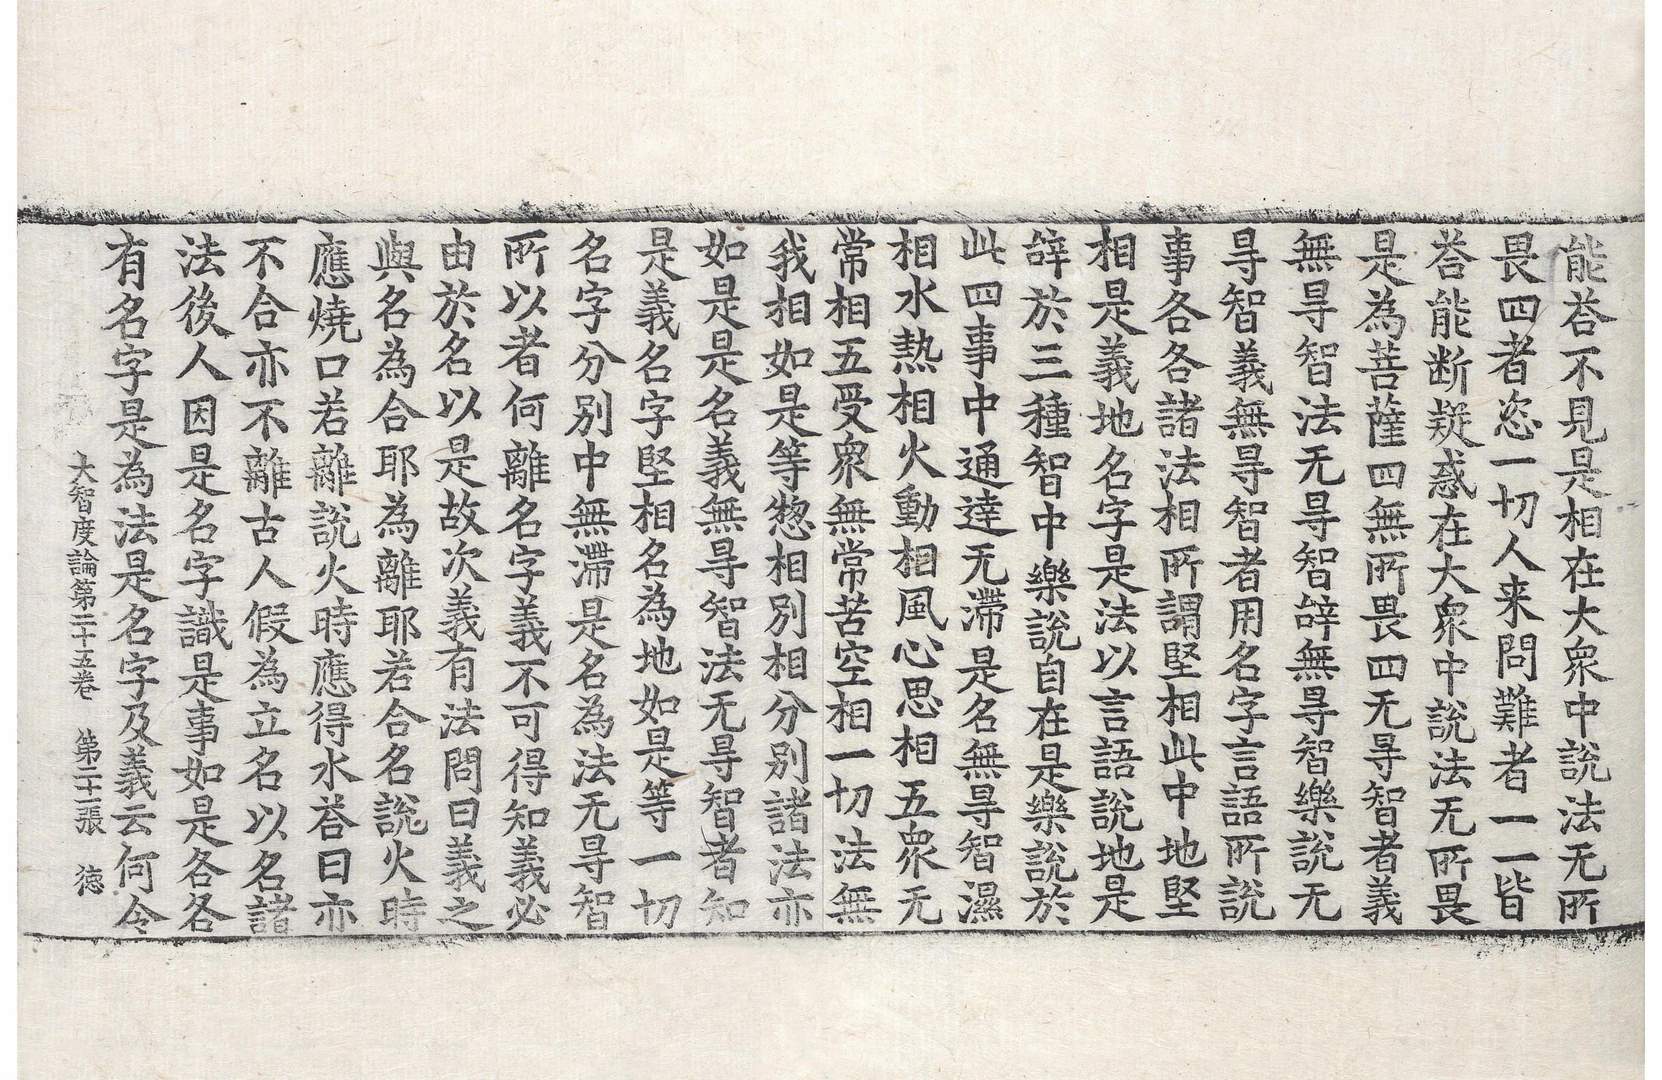 能荅不見是相在大衆中說法无所
畏四者恣一切人来問難者一一皆
荅能断疑惑在大衆中說法无所畏
是為菩薩四無所畏四无㝵智者義
無㝵智法无㝵智辝無㝵智樂說无
㝵智義無㝵智者用名字言語所說
事各各諸法相所謂堅相此中地堅
相是義地名字是法以言語說地是
辝於三種智中樂說自在是樂說於
此四事中通達无滯是名無㝵智濕
相水熱相火動相風心思相五衆无
常相五受衆無常苦空相一切法無
我相如是等惣相別相分別諸法亦
如是是名義無㝵智法无㝵智者知
是義名字堅相名為地如是等一切
名字分別中無滯是名為法无㝵智
所以者何離名字義不可得知義必
由於名以是故次義有法問曰義之
與名為合耶為離耶若合名說火時
應燒口若離說火時應得水荅曰亦
不合亦不離古人假為立名以名諸
法後人因是名字識是事如是各各
有名字是為法是名字及義云何令
大智度論第二十五卷 第二十一張 徳